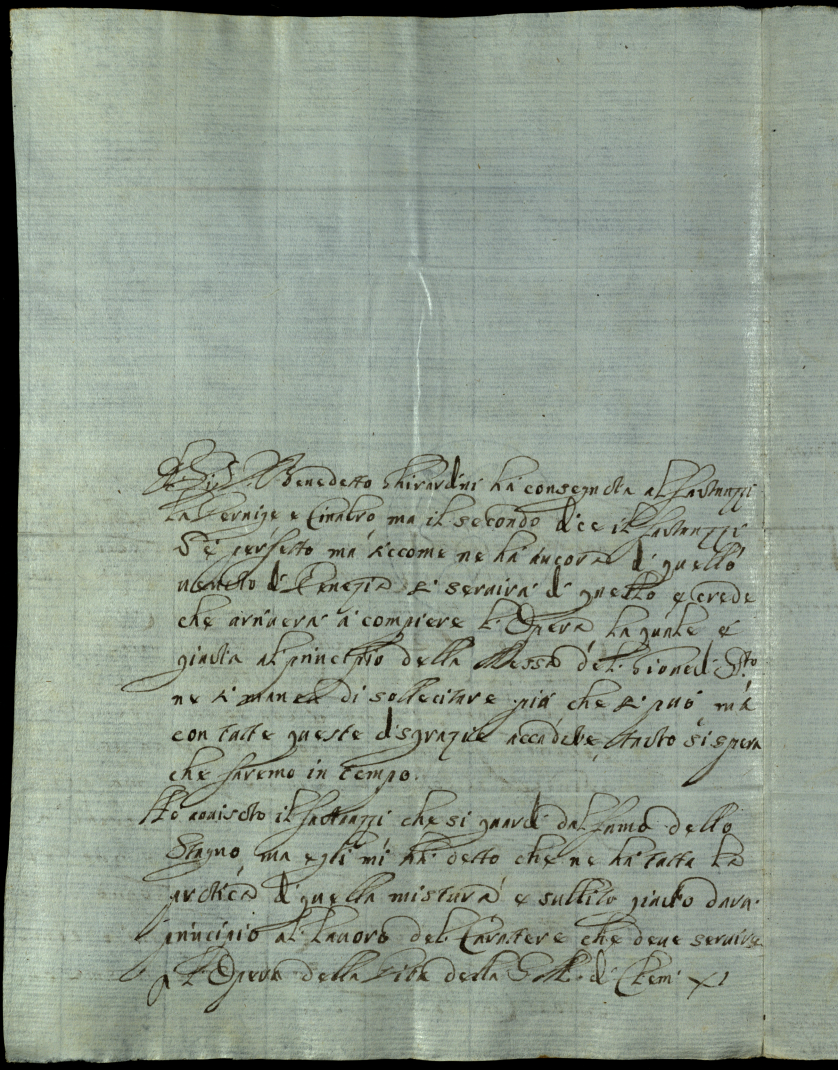 Il Sig.r Benedetto Ghirardini ha consegnata al Fantauzzi
la Vernige e Cinabro, ma il secondo dice il Fantauzzi
perfetto ma siccome ne ha ancora di quello
uenuto di Venezia si seruirà di quello e crede
che arriuerà à compiere l'Opera la quale è
giunta al principio della Messa del Gioued: Sto
ne si manca di sollecitare più che si può mà
con tutte queste disgrazie accadute, tanto si spera
che saremo in tempo.
Hò auuisato il Fantauzzi che si guardi dal fumo dello
Stagno, ma egli mi hà detto che ne hà tutta la
pratica di quella mistura e subbito giunto darà
principio al lauoro del Carattere che deue seruire
p l'Opera della Vita della di Clem: XI